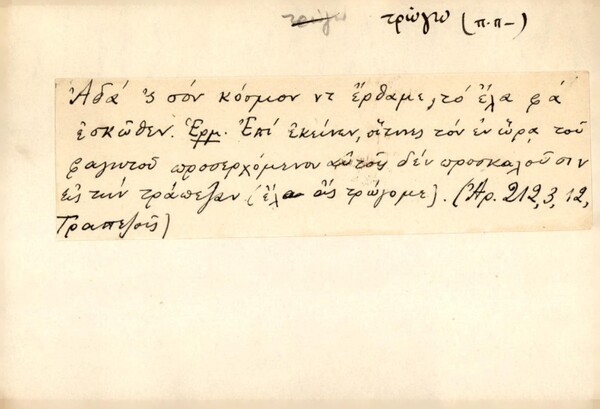 τρώγω τρώγω (π.π-)
Ἀδὰ 'ς σὸν κόσμον ντ' ἔρθαμε, τὸ ἔλα φά
ἐσκῶθεν. Ἑρμ. Ἐπὶ ἐκείνων, οἵτινες τὸν ἐν ὥρᾳ τοῦ
φαγητοῦ προσερχόμενον αὐτοὺς δὲν προσκαλοῦσιν
εἰς τὴν τράπεζαν (ἔλα ἂς τρώγομε). (Ἀρ. 212, 3, 12,
Τραπεζοῦς)